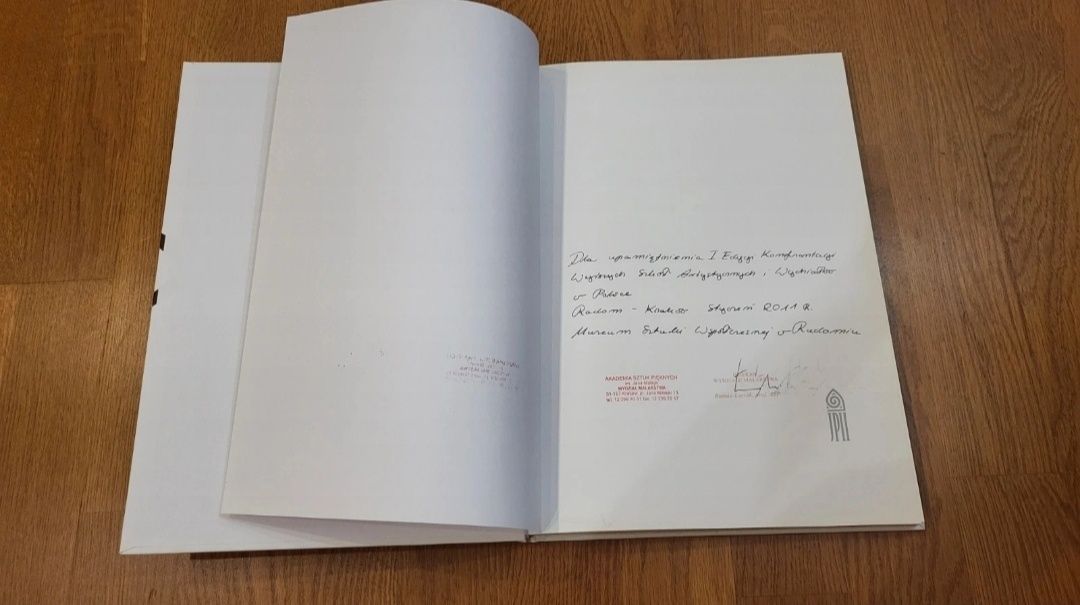 Dla upamiętnienia I Edycji Konfrontacji
Wyższych Szkół Artystycznych i Wydziałów
w Polsce
Radom - Kraków Styczeń 2011 R.
Muzeum Sztuki Współczesnej w Radomiu
AKADEMIA SZTUK PIĘKNYCH
im. Jana Matejki
WYDZIAŁ MALARSTWA
31-157 Kraków, pl. Jana Matejki 13
WYDZIAŁU MALARSTWA
JPII